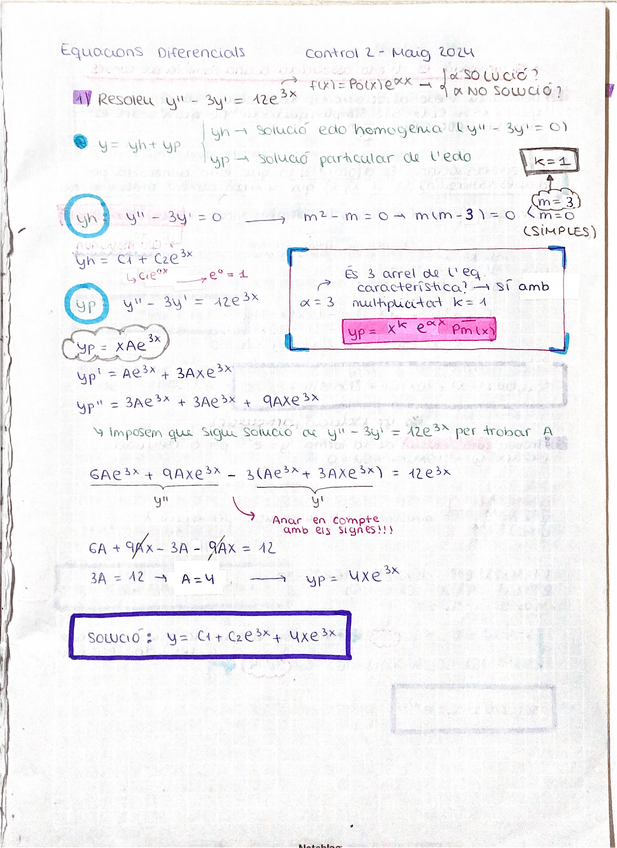 Equacions Diferencials Control 2 - Maig 2024
1) Resoleu y'' - 3y' = 12e^3x → f(x) = P0(x)e^αx → { α SOLUCIÓ?
α NO SOLUCIÓ?
y = yh + yp { yh → solució edo homogènia (y'' - 3y' = 0)
yp → solució particular de l'edo
k = 1
yh: y'' - 3y' = 0 → m² - m = 0 → m(m-3) = 0 < m = 3
m = 0
(SIMPLES)
yh = C1 + C2e^3x
↳ C1e^αx → e^0 = 1
yp: y'' - 3y' = 12e^3x
α = 3 → És 3 arrel de l'eq.
característica? → sí amb
multiplicitat k = 1
yp = x^k e^αx Pm(x)
yp = xAe^3x
yp' = Ae^3x + 3Axe^3x
yp'' = 3Ae^3x + 3Ae^3x + 9Axe^3x
↳ Imposem que sigui solució de y'' - 3y' = 12e^3x per trobar A
6Ae^3x + 9Axe^3x - 3(Ae^3x + 3Axe^3x) = 12e^3x
y'' y'
Anar en compte
amb els signes!!!
6A + 9Ax - 3A - 9Ax = 12
3A = 12 → A = 4 → yp = 4xe^3x
SOLUCIÓ: y = C1 + C2e^3x + 4xe^3x